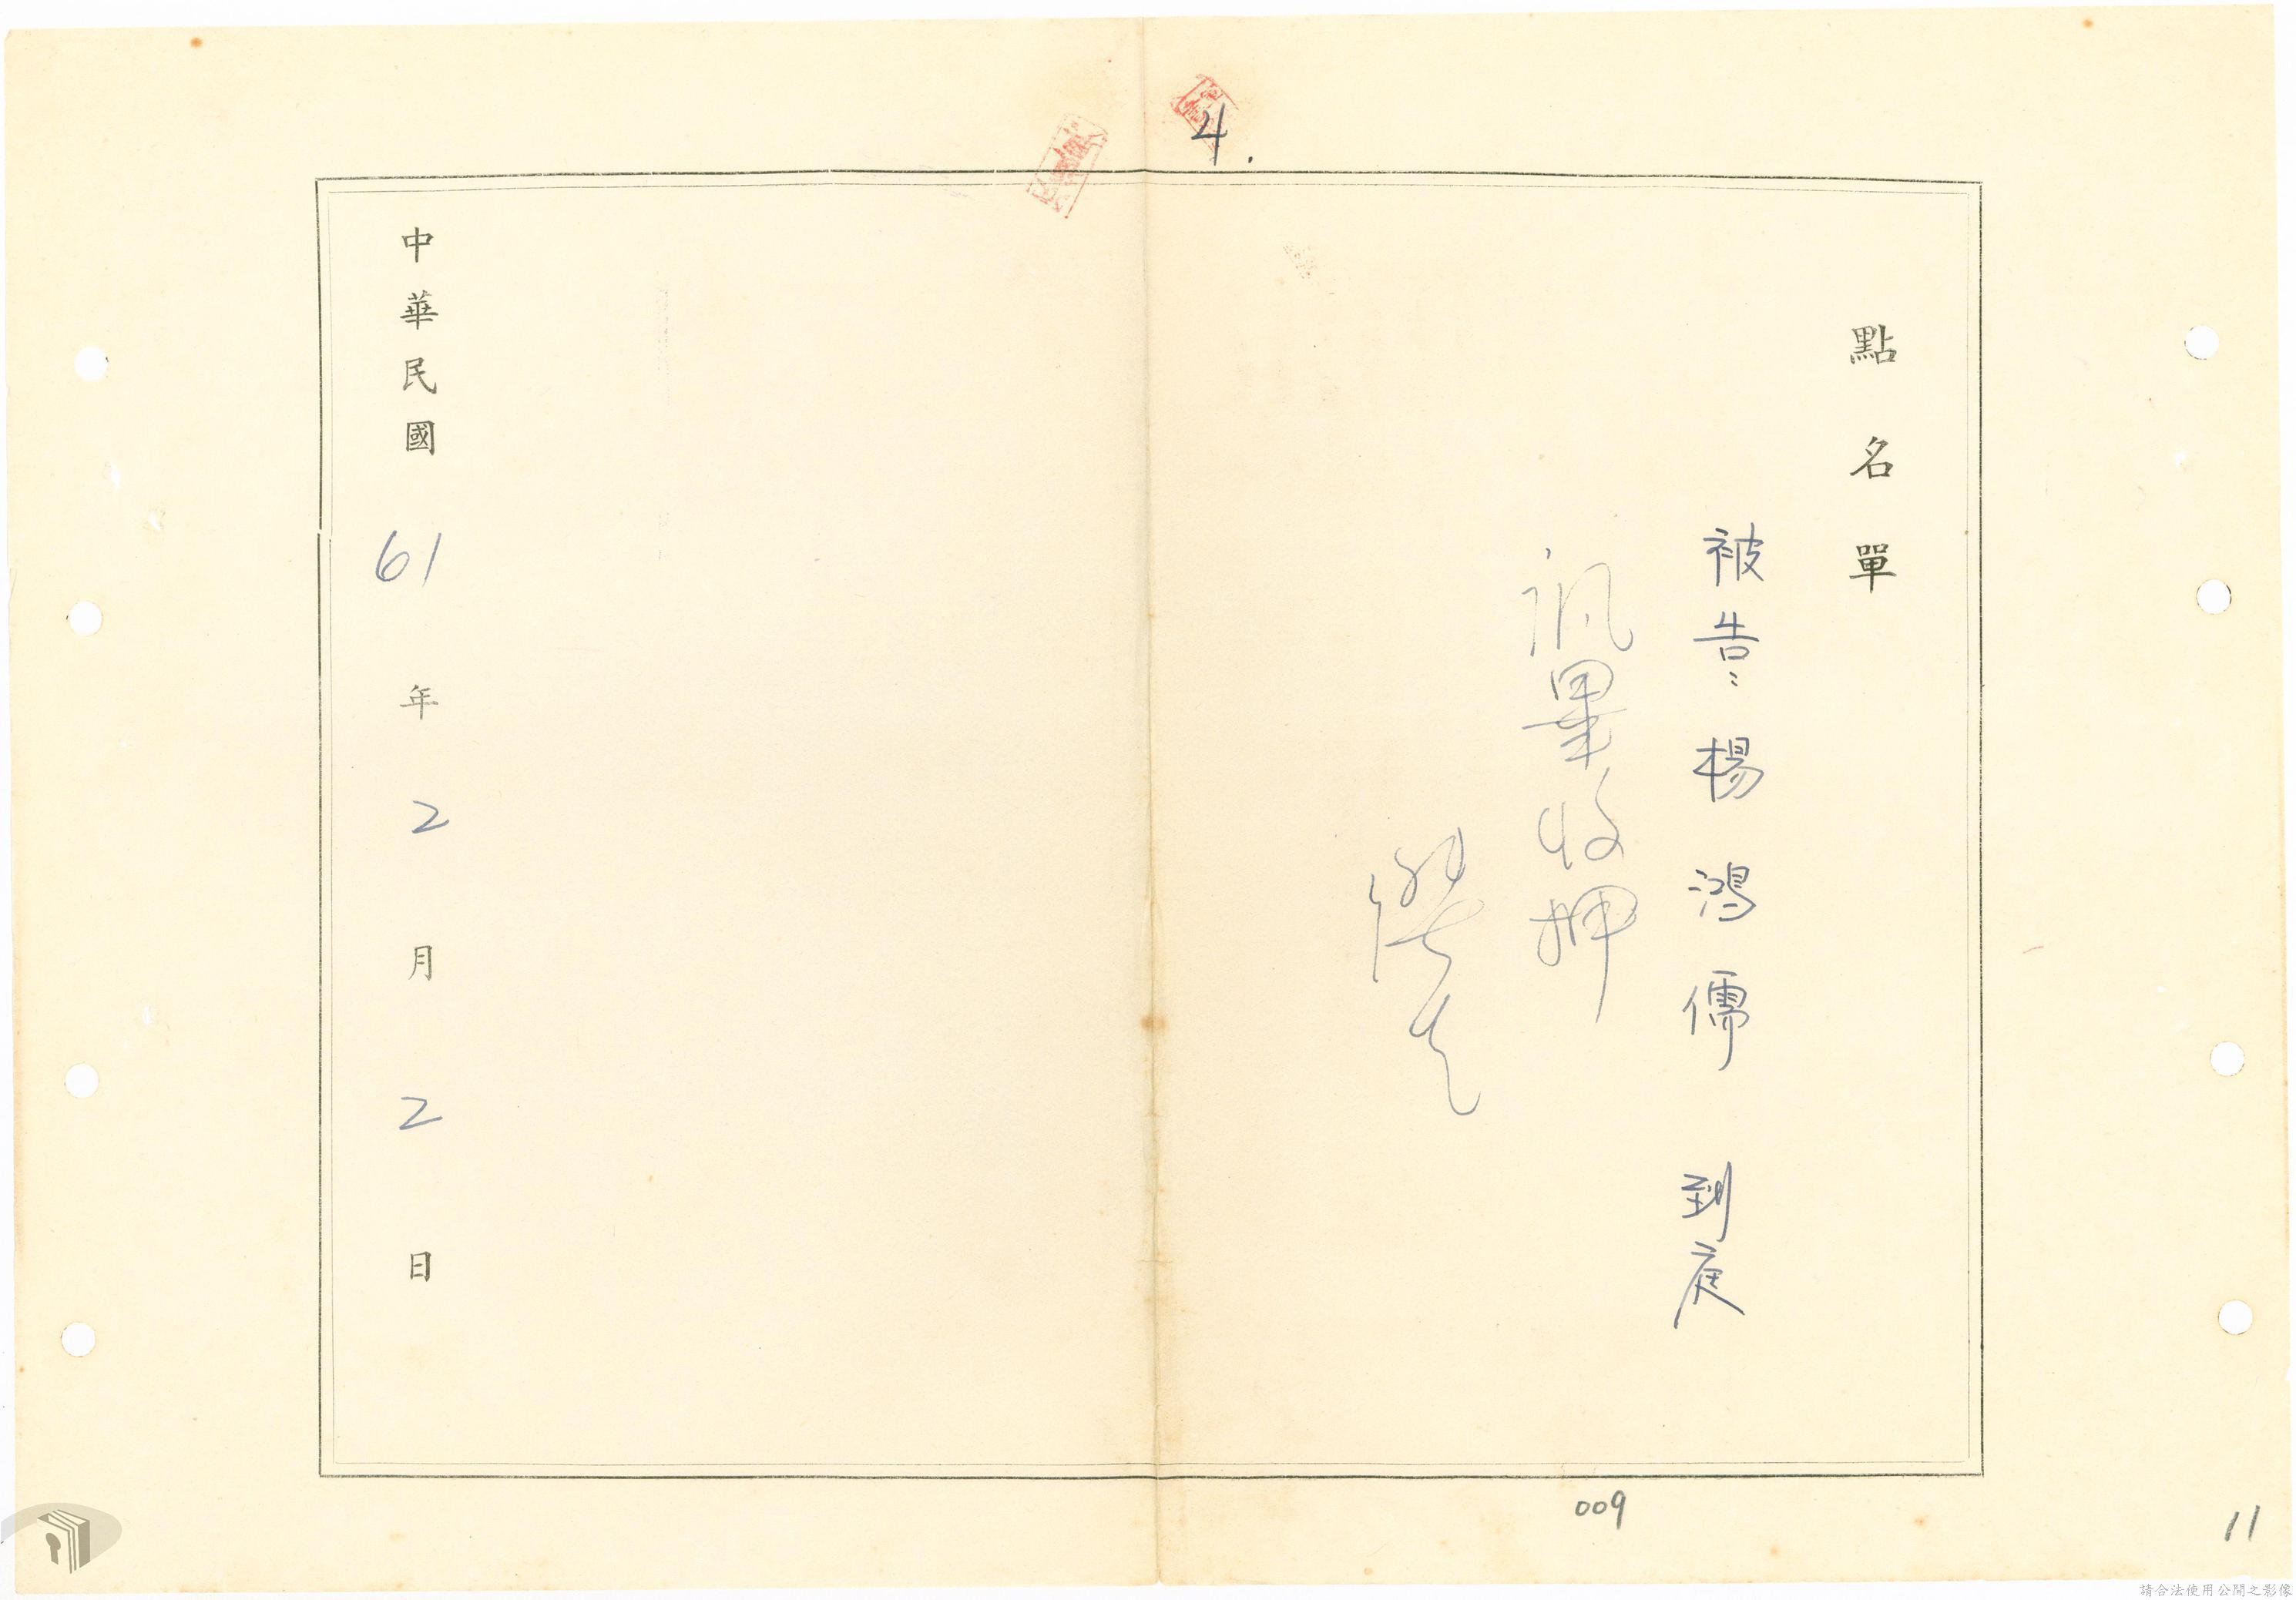 4.
點名單
被告：楊鴻儒　到庭
訊畢收押
中華民國61年2月2日
009
11
請合法使用公開之影像